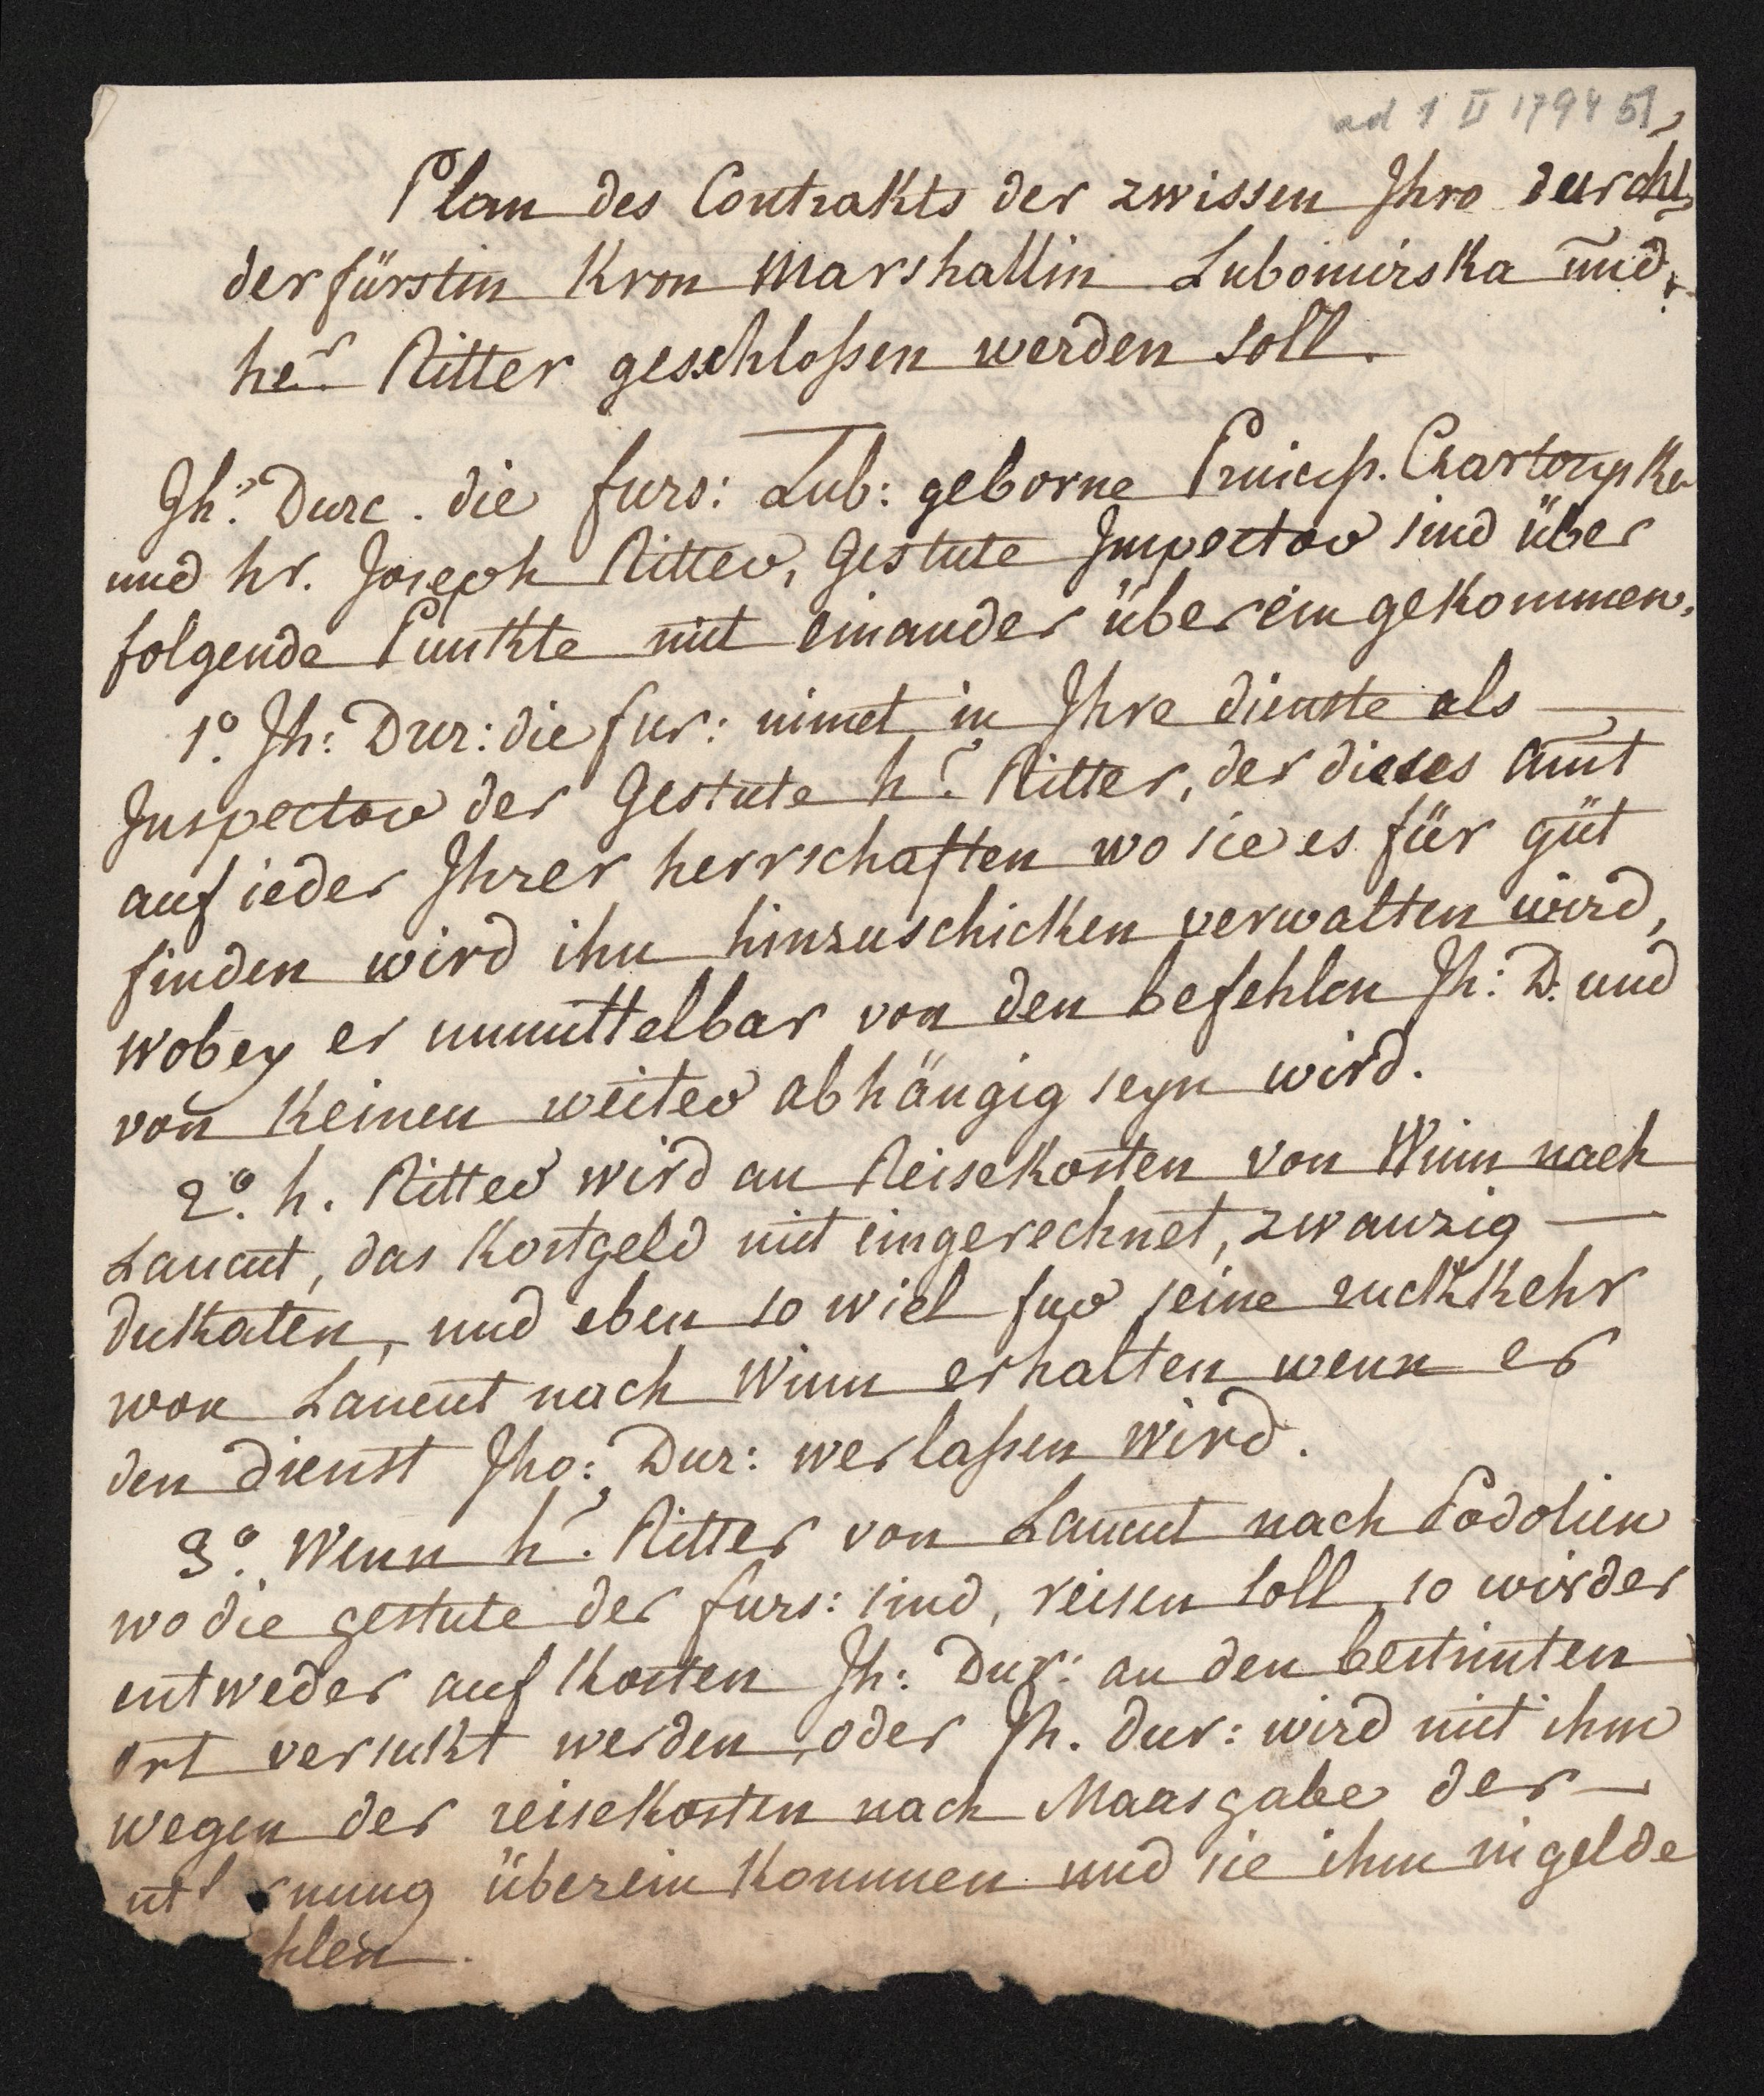 ad 1 II 1794 51
Plan des Contrakts der zwissen Ihro durchl
der fürstin Kron Marshallin Lubomirska und
her Ritter geschloßen werden soll.
Ih.º Durc. die furs: Lub: geborne Princeß. Czartoryska
und hr. Joseph Ritter, Gestute Inspector sind über
folgende Punkte mit einander über ein gekommen.
1º. Ih: Dur: die fur: nimet in Ihre dienste als —
Inspector der Gestute hr. Ritter, der dieses amt
auf ieder Ihrer herrschaften wo sie es für güt
finden wird ihn hinzuschicken verwalten wird,
wobey er unmittelbar von den befehlen Ih: D: und
von Keinen weiter abhängig seyn wird.
2º. h. Ritter wird an Reisekosten von Winn nach
Lancut, das Kostgeld mit eingerechnet, zwanzig —
duKaten, und eben so wiel fur seine ruckKehr
won Lancut nach Winn erhalten wenn er
den dienst Iho: Dur: werlaßen wird.
3º. Wenn hr. Ritter von Lancut nach Podolien
wo die gestute der furs: sind, reisen soll, so wirder
entweder auf Kosten Ih: Dur: an den bestimten
ort versukt werden, oder Ih. dur: wird mit ihm
wegen der reiseKosten nach Maasgabe der —
nt rnung überein Kommen und sie ihm in gelde
hlen.